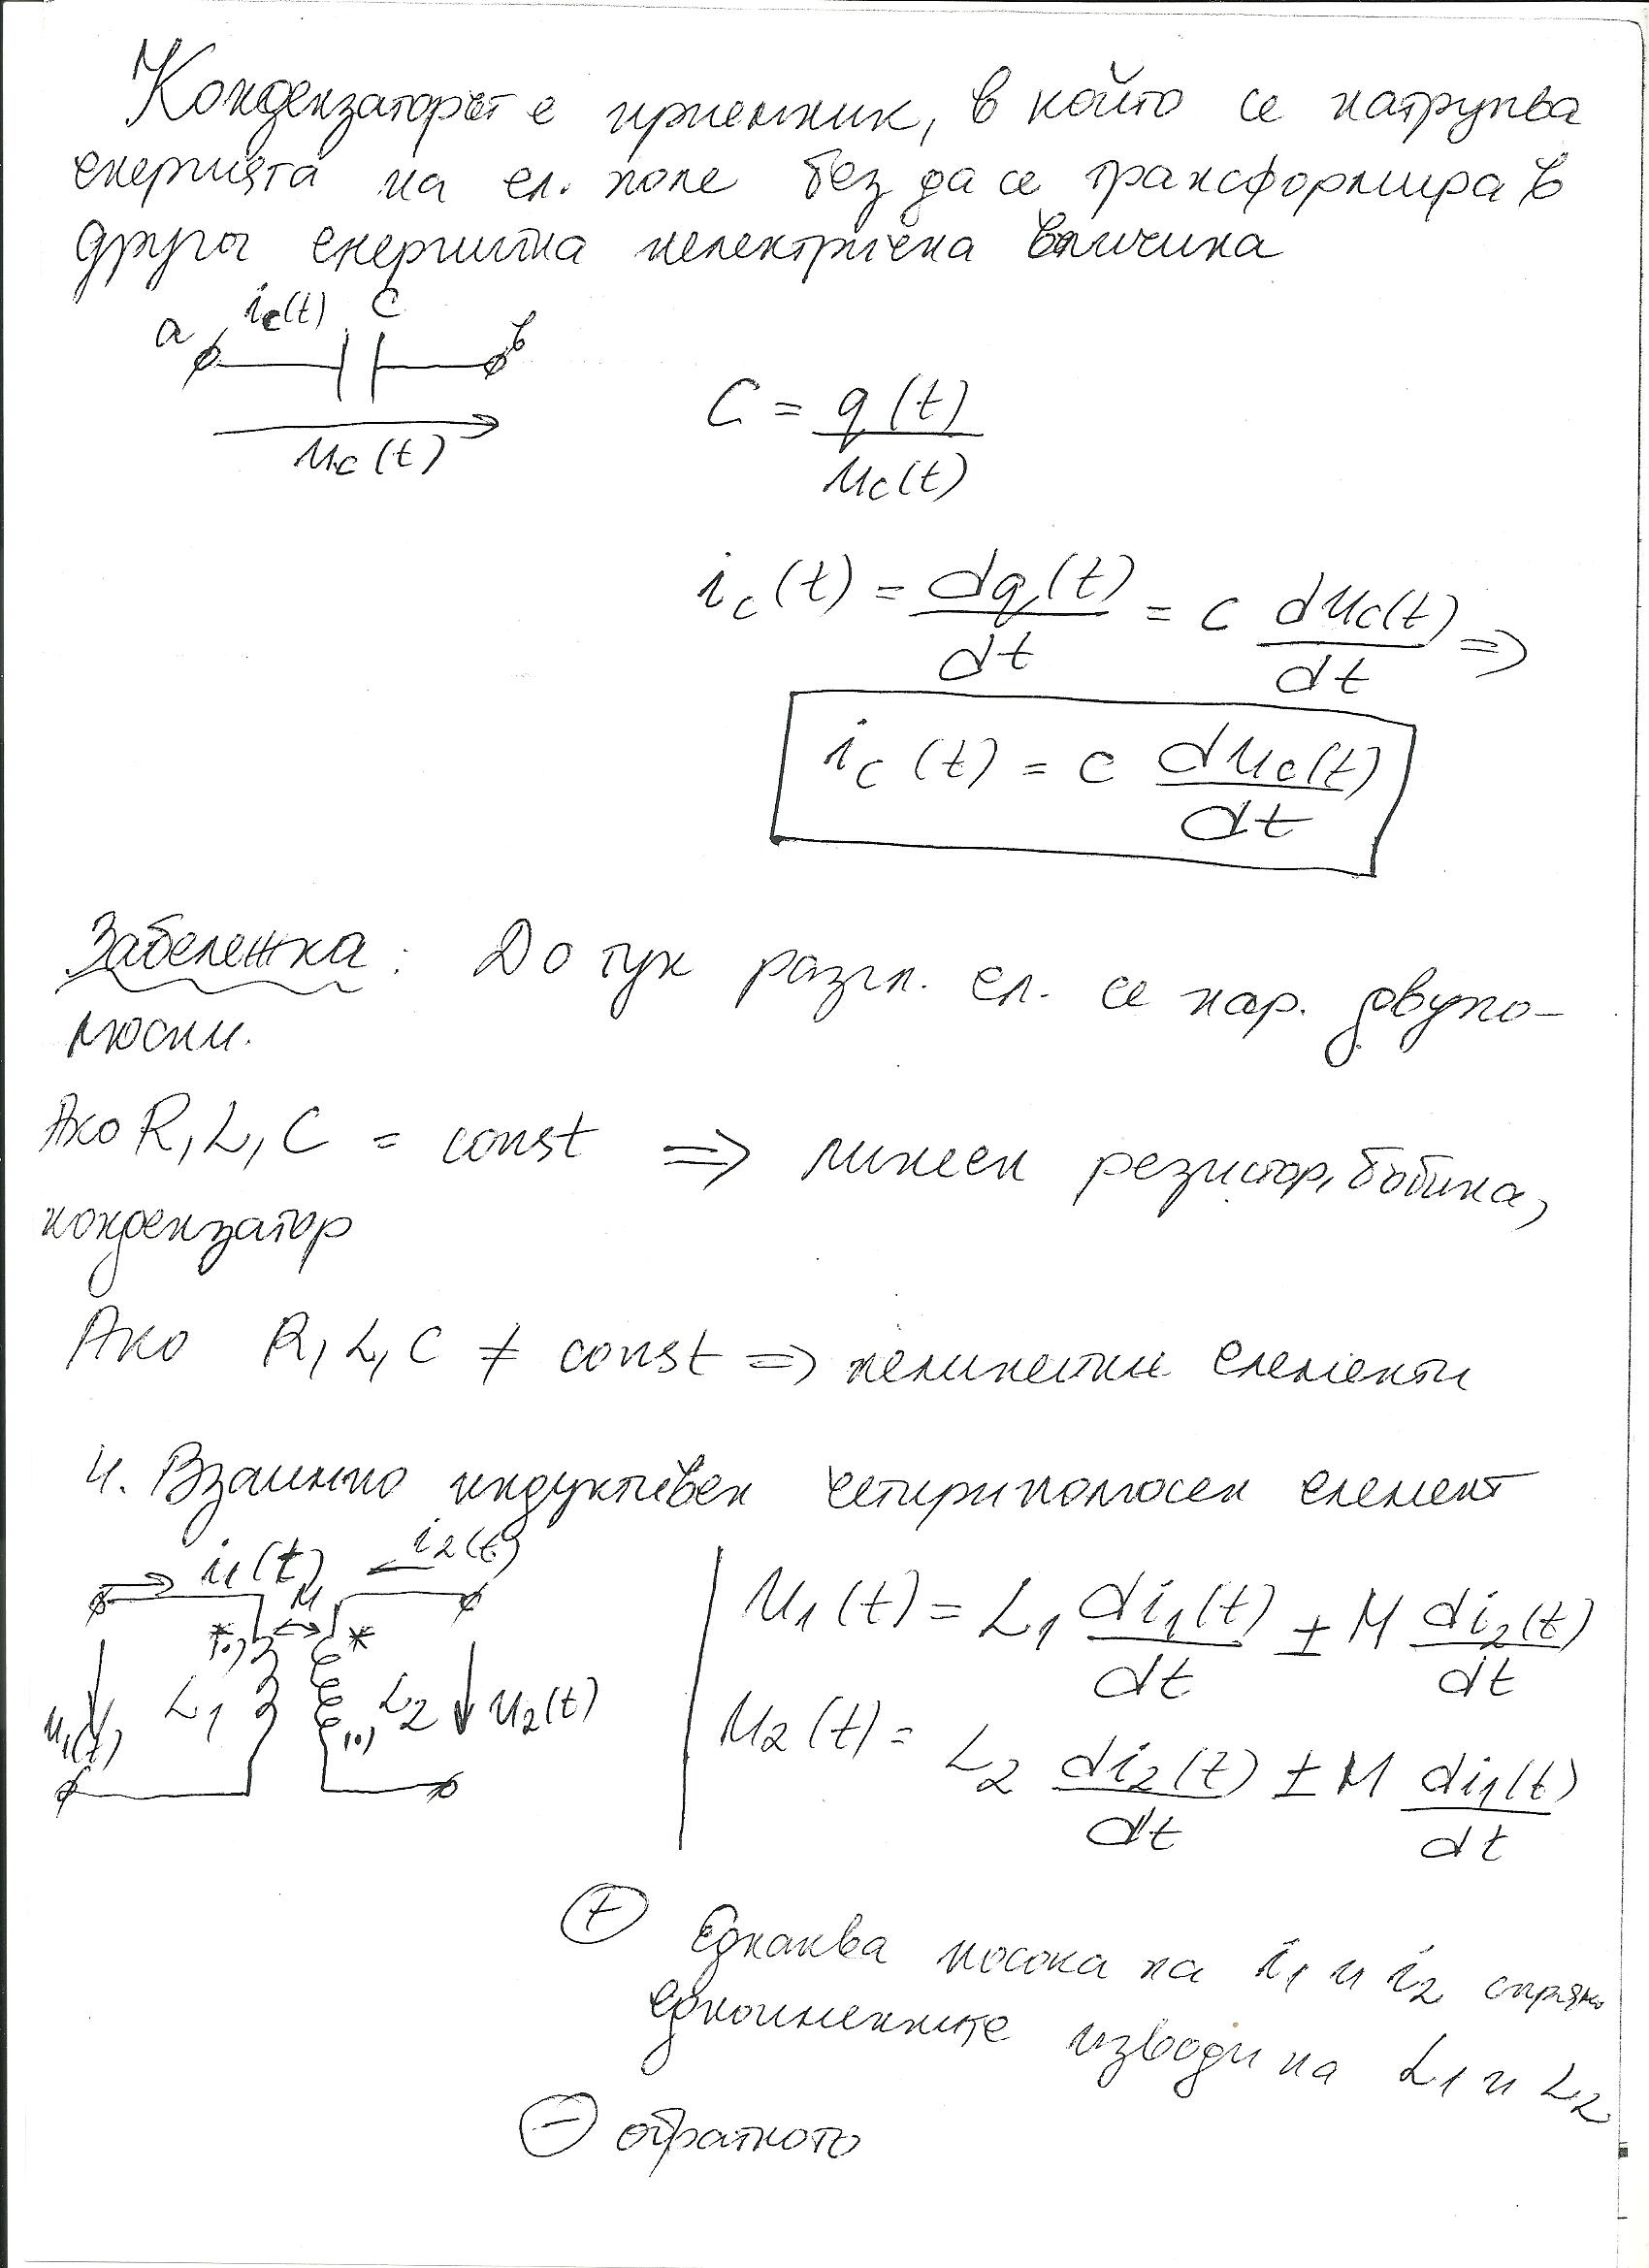 Кондензаторът е приемник, в който се натрупва
енергията на ел. поле без да се трансформира в
друга енергийна неелектрична величина
a ic(t) C b
uc(t)
C = q(t) / uc(t)
ic(t) = dq(t)/dt = C duc(t)/dt =>
ic(t) = C duc(t)/dt
Забележка: До тук разгл. ел. се нар. двупо-
люсни.
Ако R, L, C = const => линеен резистор, бобина,
кондензатор
Ако R, L, C ≠ const => нелинейни елементи
4. Взаимно индуктивен четириполюсен елемент
i1(t) M i2(t)
* (•) *
u1(t) L1 L2 (•) u2(t)
u1(t) = L1 di1(t)/dt ± M di2(t)/dt
u2(t) = L2 di2(t)/dt ± M di1(t)/dt
+ Еднаква посока на i1 и i2 спрямо
едноименните изводи на L1 и L2
− обратното